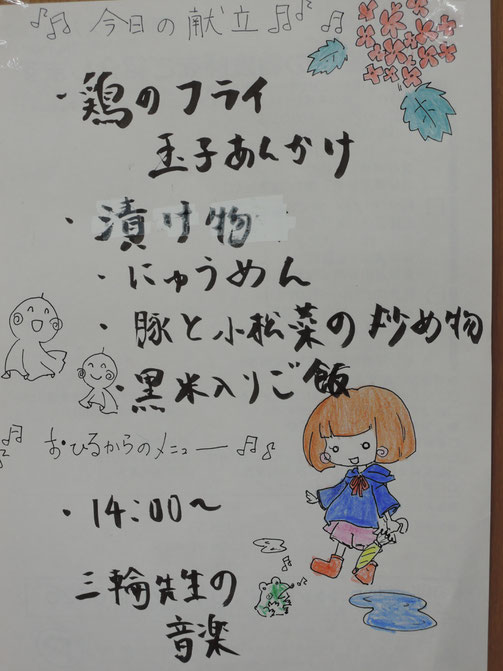 今日の献立
・鶏のフライ
玉子あんかけ
・漬け物
・にゅうめん
・豚と小松菜の炒め物
・黒米入りご飯
おひるからのメニュー
・14:00〜
三輪先生の
音楽